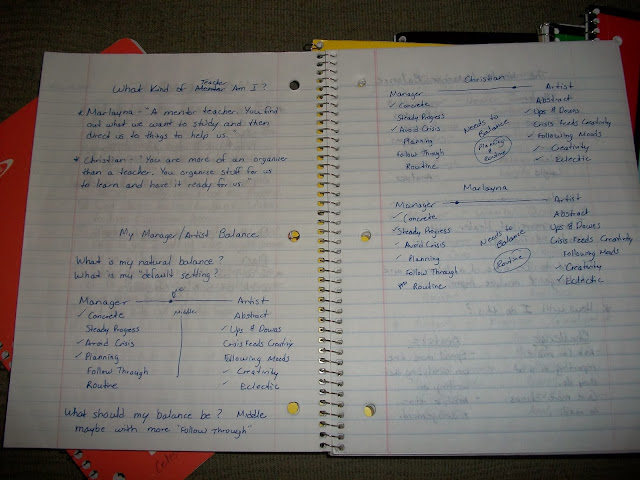 What Kind of Teacher Mentor Am I?
* Marlayna - "A mentor teacher. You find
out what we want to study and then
direct us to things to help us."
* Christian - "You are more of an organizer
than a teacher. You organize stuff for us
to learn and have it ready for us."
My Manager/Artist Balance
What is my natural balance?
What is my "default setting"?
me
Manager Artist
✓ Concrete Middle Abstract
Steady Progress ✓ Ups & Downs
✓ Avoid Crisis Crisis Feeds Creativity
✓ Planning Following Moods
Follow Through ✓ Creativity
Routine ✓ Eclectic
What should my balance be? Middle
maybe with more "Follow Through"
Christian
Manager Artist
✓ Concrete Abstract
Steady Progress ✓ Ups & Downs
✓ Avoid Crisis Needs to Crisis Feeds Creativity
Planning Balance ✓ Following Moods
Follow Through Planning & ✓ Creativity
Routine Routine ✓ Eclectic
Marlayna
Manager Artist
✓ Concrete Abstract
✓ Steady Progress Needs to Ups & Downs
✓ Avoid Crisis Balance Crisis Feeds Creativity
✓ Planning Following Moods
Follow Through Routine ✓ Creativity
no Routine ✓ Eclectic